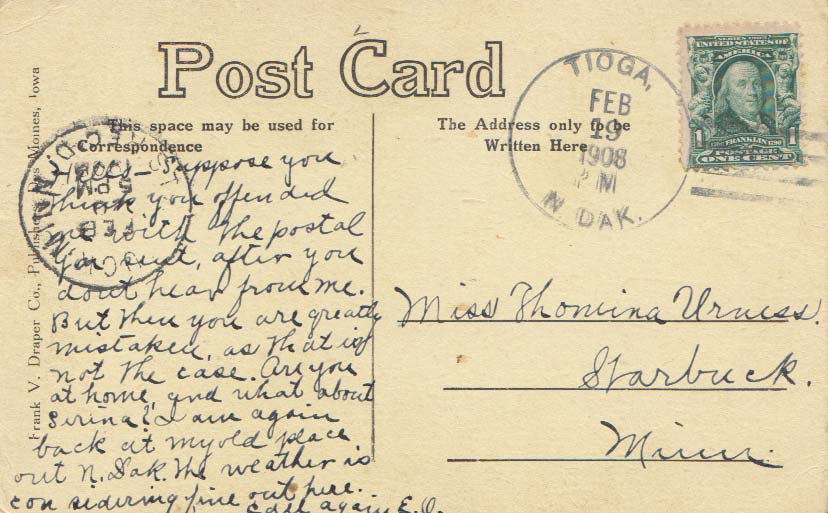 Post Card
This space may be used for
Correspondence
The Address only to be
Written Here
Frank V. Draper Co., Publishers, Des Moines, Iowa
TIOGA,
FEB
19
1908
PM
N. DAK.
SERIES 1902
UNITED STATES OF
AMERICA
1
FRANKLIN
1
POSTAGE
ONE CENT
REC'D.
5 PM
FEB
MINN.
Hello - Suppose you
think you offended
me with the postal
you sent, after you
dont hear from me.
But then you are greatly
mistaken, as that is
not the case. Are you
at home, and what about
Serina? I am again
back at my old place
out N. Dak. The weather is
considering fine out here.
Call again E. O.
Miss Thomina Urness.
Starbuck.
Minn.